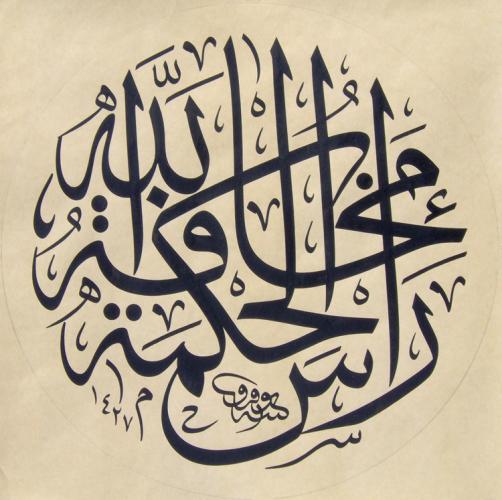 رَأْسُ الْحِكْمَةِ مَخَافَةُ اللَّهِ
١٤٢٧